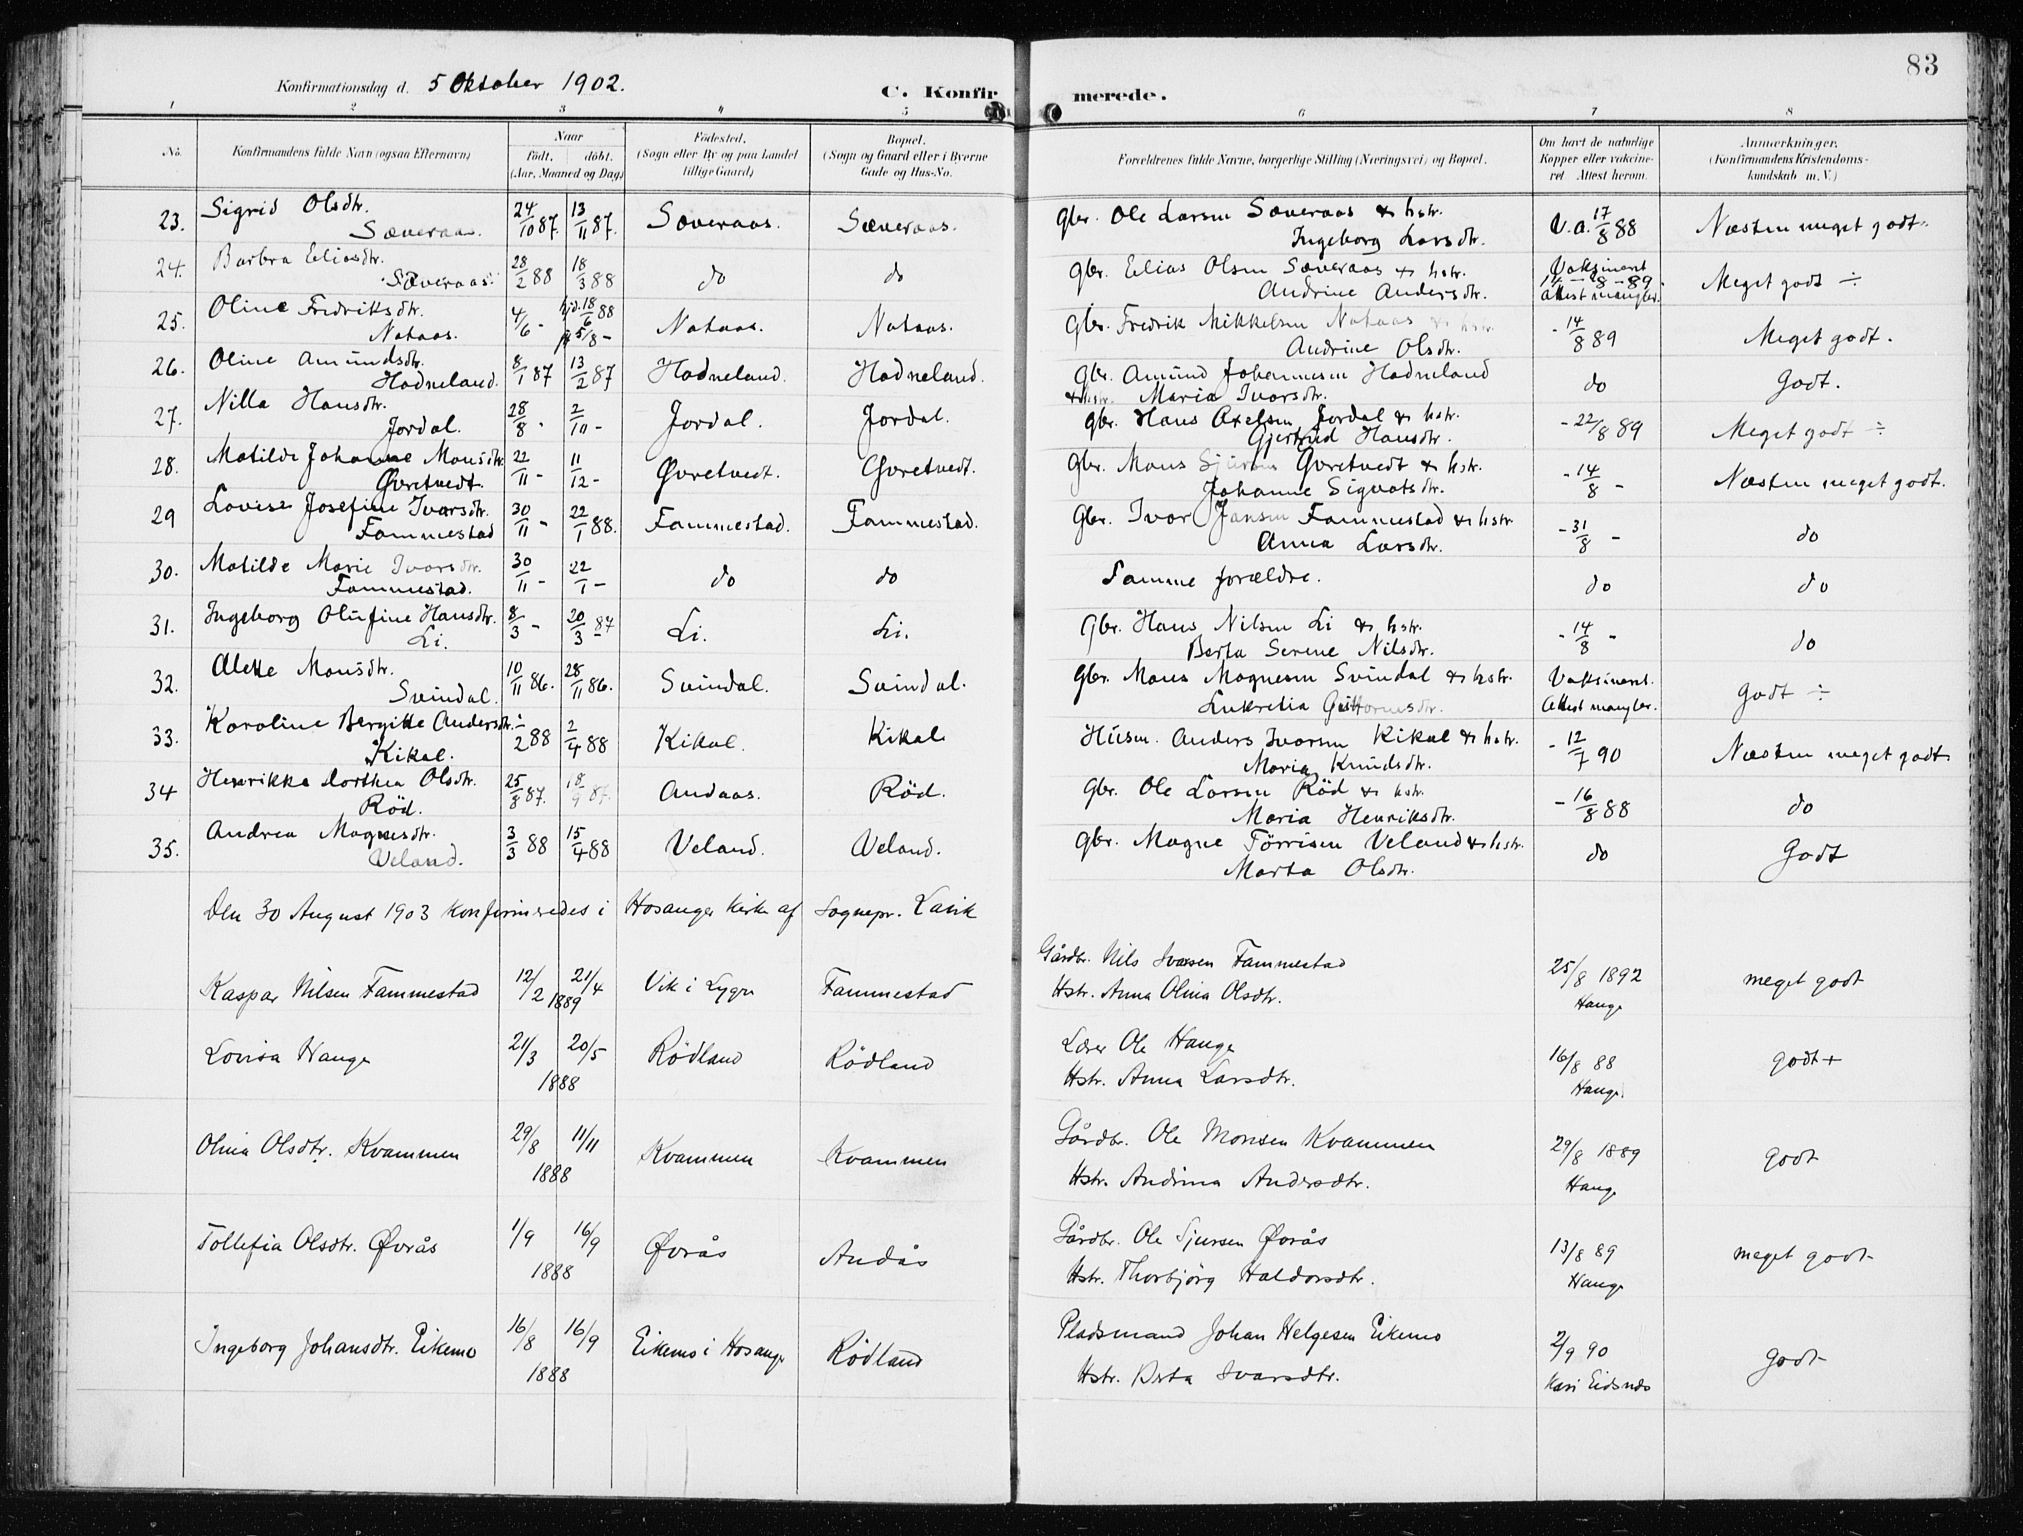 83
Konfirmationsdag d. 5 Oktober 1902.
C. Konfir merede.
1 2 3 4 5 6 7 8
No. Konfirmandens fulde Navn (ogsaa Efternavn) Naar født. døbt. (Aar, Maaned og Dag) Fødested. (Sogn eller By og paa Landet tillige Gaard) Bopæl. (Sogn og Gaard eller i Byerne Gade og Hus-No. Forældrenes fulde Navne, borgerlige Stilling (Næringsvei) og Bopæl. Om havt de naturlige Kopper eller vakcineret Attest herom. Anmærkninger. (Konfirmandens Kristendomskundskab m. V.)
23. Sigrid Olsdtr. 24/10 87. 13/11 87. Sæveraas. Sæveraas. gbr. Ole Larsen Sæveraas & hstr. V.a. 17/8 88 Næsten meget godt.
Sæveraas. Ingeborg Larsdtr.
24. Barbra Eliasdtr. 28/2 88 18/3 88 do do gbr. Elias Olsen Sæveraas & hstr. Vaksineret 14-8-89. Meget godt ÷
Sæveraas. Andrine Andersdtr. attest mangler.
25. Oline Fredriksdtr. 4/6 - hjd. 18/6 88 Nataas. Nataas. gbr. Fredrik Mikkelsen Nataas & hstr. - 14/8 89 Meget godt.
Nataas. 5/8 - Andrine Olsdtr.
26. Oline Amundsdtr. 8/1 87 13/2 87 Hodneland. Hodneland. gbr. Amund Johannesen Hodneland do Godt.
Hodneland. & hstr. Maria Ivarsdtr.
27. Nilla Hansdtr. 28/8 - 2/10 - Jordal. Jordal. gbr. Hans Axelsen Jordal & hstr. - 22/8 89 Meget godt ÷
Jordal. Gjertrud Hansdtr.
28. Matilde Johanne Monsdtr. 22/11 - 11/12 - Øvretvedt. Øvretvedt. gbr. Mons Sjursen Øvretvedt & hstr. - 14/8 - Næsten meget godt.
Øvretvedt. Johanne Sigvatsdtr.
29 Lovise Josefine Ivarsdtr. 30/11 - 22/1 88. Fammestad. Fammestad. gbr. Ivar Jansen Fammestad & hstr - 31/8 - do
Fammestad Anna Larsdtr.
30. Matilde Marie Ivarsdtr. 30/11 - 22/1 - do do Samme forældre. do do
Fammestad.
31. Ingeborg Olufine Hansdtr. 8/3 - 20/3 87 Li. Li. gbr. Hans Nilsen Li & hstr. - 14/8 - do
Li. Berta Serene Nilsdtr.
32. Alette Monsdtr. 10/11 86. 28/11 86. Svindal. Svindal. gbr. Mons Magnesen Svindal & hstr. Vaksineret. Godt ÷
Svindal. Lukretia Guttormsdtr. Attest mangler.
33. Karoline Bergitte Andersdtr. 2 88 2/4 88 Kikal. Kikal. Husm. Anders Ivarsen Kikal & hstr. - 12/7 90 Næsten meget godt
Kikal. Maria Knudsdtr.
34 Henrikka Dorthea Olsdtr. 25/8 87. 18/9 87. Andaas. Rød. gbr. Ole Larsen Rød & hstr. - 16/8 88 do
Rød. Maria Henriksdtr.
35. Andrea Magnesdtr. 3/3 88 15/4 88 Veland. Veland. gbr. Magne Førrisen Veland & hstr. do Godt
Veland. Marta Olsdtr.
Den 30 August 1903 konfirmeredes i Hosanger kirke af Sognepr. Lavik
Kaspar Nilsen Fammestad 12/2 21/4 1889 Vik i Lygre Fammestad Gårdbr. Nils Ivarsen Fammestad 25/8 1892 meget godt
Hstr. Anna Olina Olsdtr. Hauge
Lovisa Hauge 21/3 20/5 Rødland Rødland Lærer Ole Hauge 16/8 88 godt +
1888 Hstr. Anna Larsdtr. Hauge.
Olina Olsdtr. Kvammen 29/8 11/11 Kvammen Kvammen Gårdbr. Ole Monsen Kvammen 29/8 1889 godt
1888 Hstr. Andrina Andersdtr. Hauge
Tollefia Olsdtr. Øvrås 1/9 16/9 Øvrås Andås Gårdbr. Ole Sjursen Øvrås 13/8 89 meget godt
1888 Hstr. Thorbjørg Haldorsdtr. Hauge
Ingeborg Johansdtr. Eikemo 16/8 16/9 Eikemo i Hosanger Rødland Pladsmand Johan Helgesen Eikemo 2/9 90 godt
1888 Hstr. Brita Ivarsdtr. Kari Eidsnes